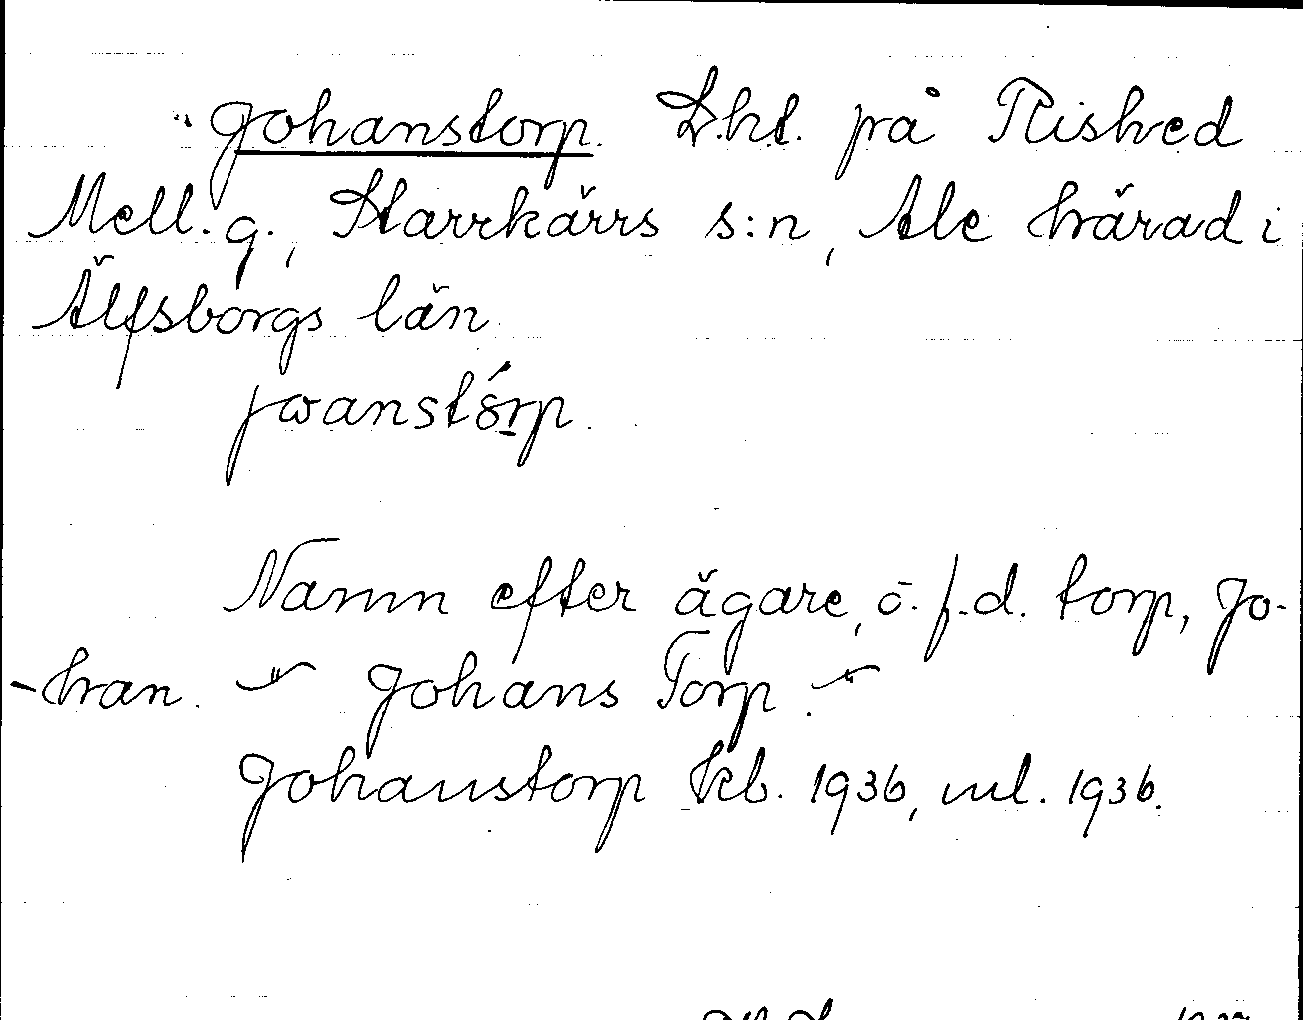 Johanstorp. L.ht. på Rished
Mell.g., Starrkärrs s:n, Ale härad i
Älfsborgs län
jωanstórp.
Namn efter ägare, ö. f.d. torp, Jo-
-han. Johans Torp.
Johanstorp kb. 1936, ml. 1936.